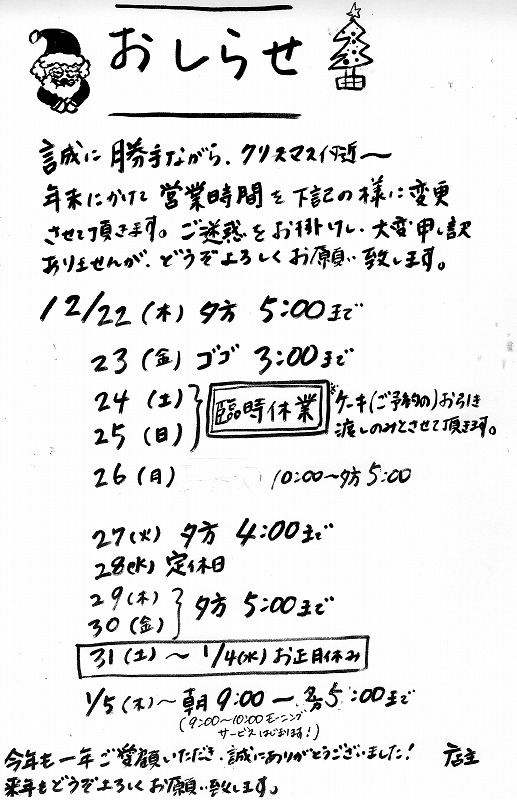 おしらせ
誠に勝手ながら、クリスマス付近〜
年末にかけて営業時間を下記の様に変更
させて頂きます。ご迷惑をお掛けし、大変申し訳
ありませんが、どうぞよろしくお願い致します。
12/22(木) 夕方 5:00まで
23(金) ゴゴ 3:00まで
24(土)
25(日)
臨時休業
※ケーキ(ご予約の)お引き
渡しのみとさせて頂きます。
26(月) 10:00〜夕方5:00
27(火) 夕方 4:00まで
28(水) 定休日
29(木)
30(金)
夕方 5:00まで
31(土)〜1/4(水)お正月休み
1/5(木)〜朝9:00〜夕方5:00まで
(9:00〜10:00モーニング
サービスはじまります!)
今年も一年ご愛顧いただき、誠にありがとうございました!
来年もどうぞよろしくお願い致します。
店主